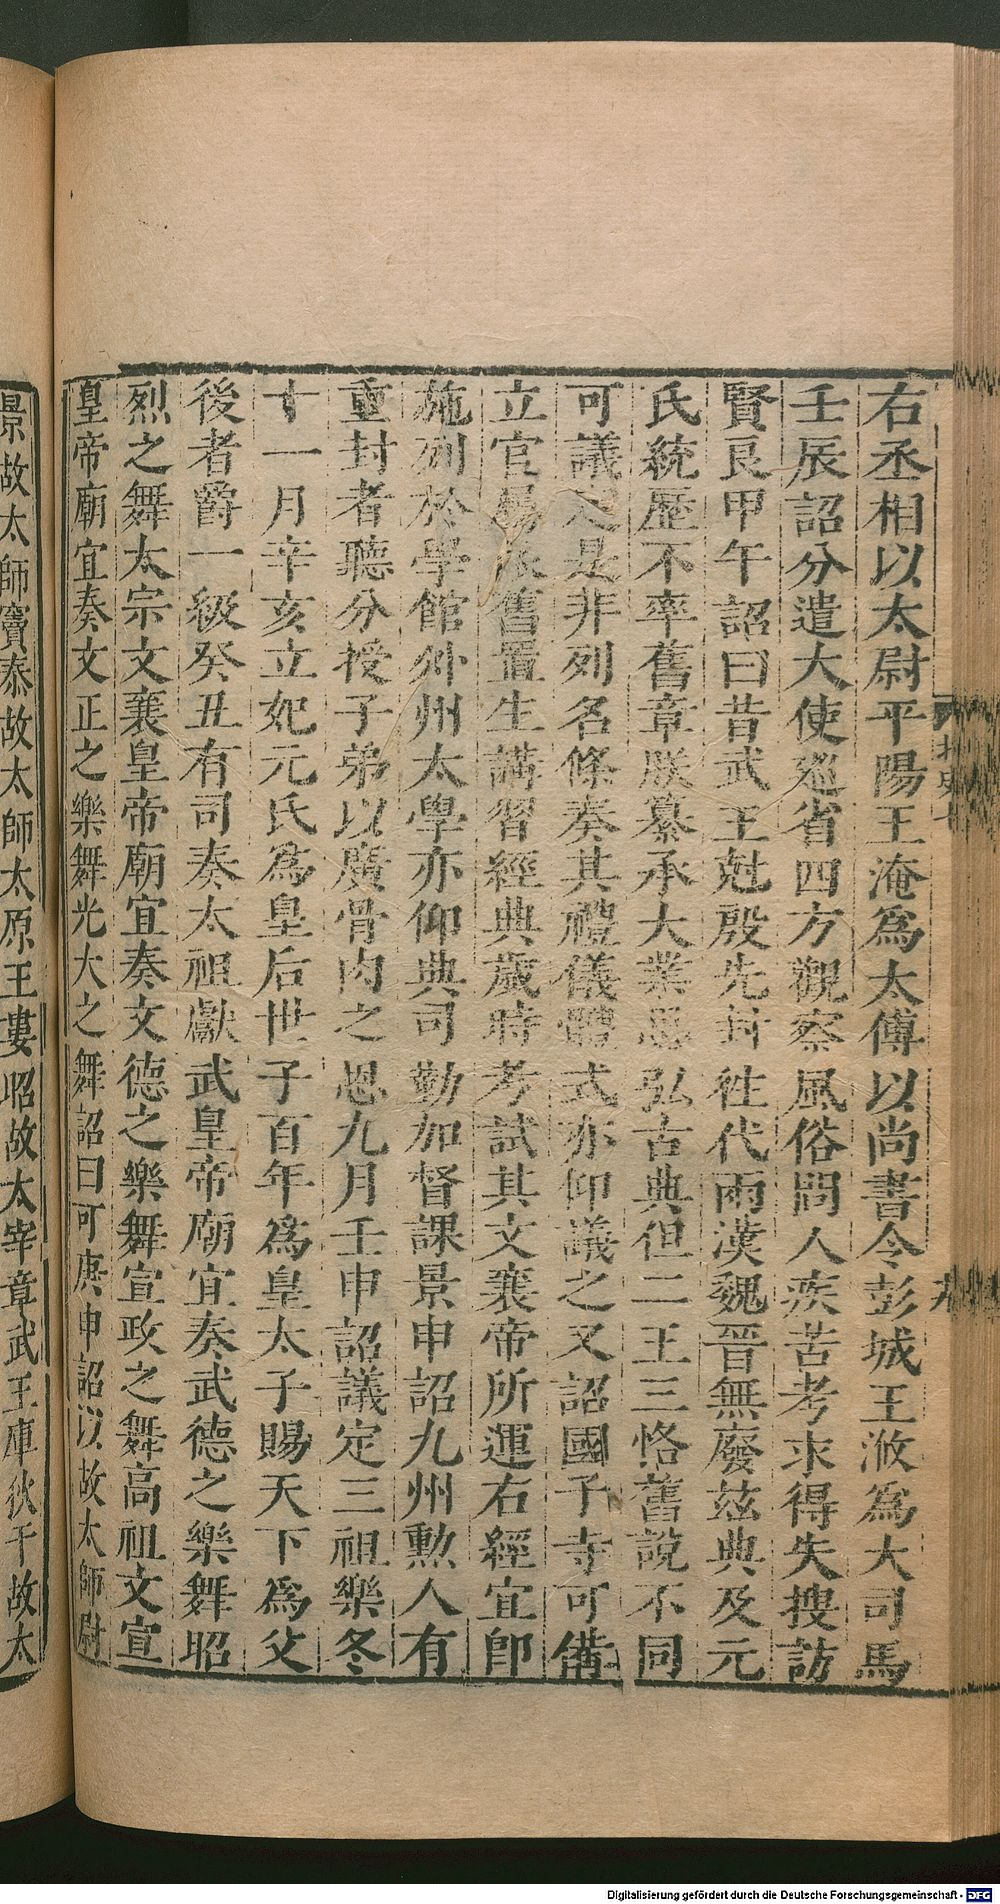 右丞相以太尉平陽王淹爲太傅以尚書令彭城王浟爲大司馬
壬辰詔分遣大使巡省四方觀察風俗問人疾苦考求得失搜訪
賢良甲午詔曰昔武王尅殷先封往代兩漢魏晉無廢兹典及元
氏統歷不率舊章朕纂承大業思弘古典但二王三恪舊說不同
可議定是非列名條奏其禮儀體式亦仰議之又詔國子寺可備
立官屬依舊置生講習經典歲時考試其文襄帝所運石經宜即
施列於學館外州太學亦仰典司勤加督課景申詔九州勲人有
重封者聽分授子弟以廣骨肉之恩九月壬申詔議定三祖樂冬
十一月辛亥立妃元氏爲皇后世子百年爲皇太子賜天下爲父
後者爵一級癸丑有司奏太祖獻武皇帝廟宜奏武德之樂舞昭
烈之舞太宗文襄皇帝廟宜奏文德之樂舞宣政之舞高祖文宣
皇帝廟宜奏文正之樂舞光大之舞詔曰可庚申詔以故太師尉
景故太師竇泰故太師太原王婁昭故太宰章武王庫狄干故太
北史七
九
Digitalisierung gefördert durch die Deutsche Forschungsgemeinschaft - DFG